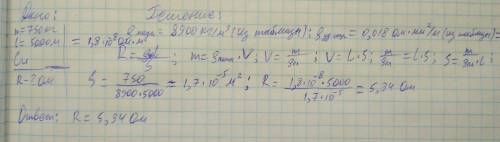 Дано: Решение:
m=750кг
l=5000м
Cu
R-? Ом
ρпл = 8900 кг/м³ (из таблицы); = 0,018 Ом·мм²/м (из таблицы) =
= 1,8·10⁻⁸ Ом·м
R = ρl/S ; m = ρпл·V; V = m/ρп ; V = L·S; m/ρп = L·S ; S = m/ρп·L ;
S = 750/8900·5000 = 1,7·10⁻⁵ м²; R = 1,8·10⁻⁸·5000/1,7·10⁻⁵ = 5,34 Ом
Ответ: R = 5,34 Ом